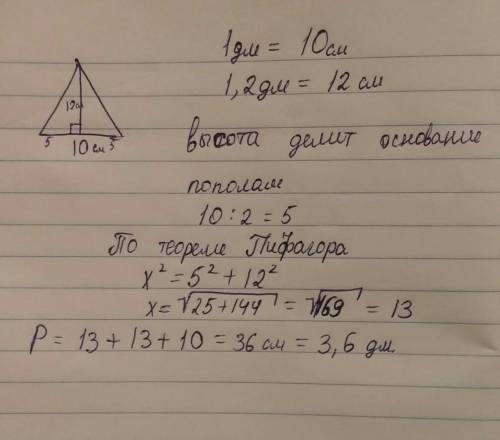 1дм = 10см
1,2дм = 12 см
12см
5 10 см 5
высота делит основание
пополам
10 : 2 = 5
По теореме Пифагора
x² = 5² + 12²
x = √25+144 = √169 = 13
P = 13 + 13 + 10 = 36 см = 3,6 дм.